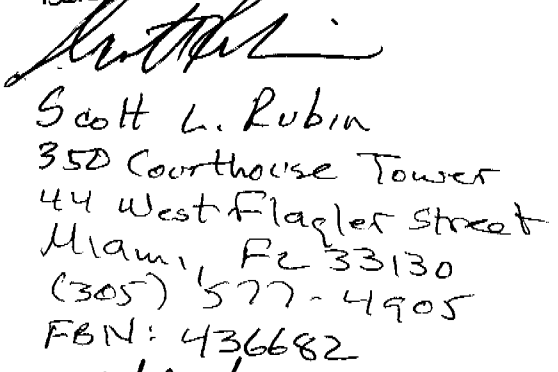 Scott L. Rubin
350 Courthouse Tower
44 West Flagler Street
Miami, FL 33130
(305) 577-4905
FBN: 436682